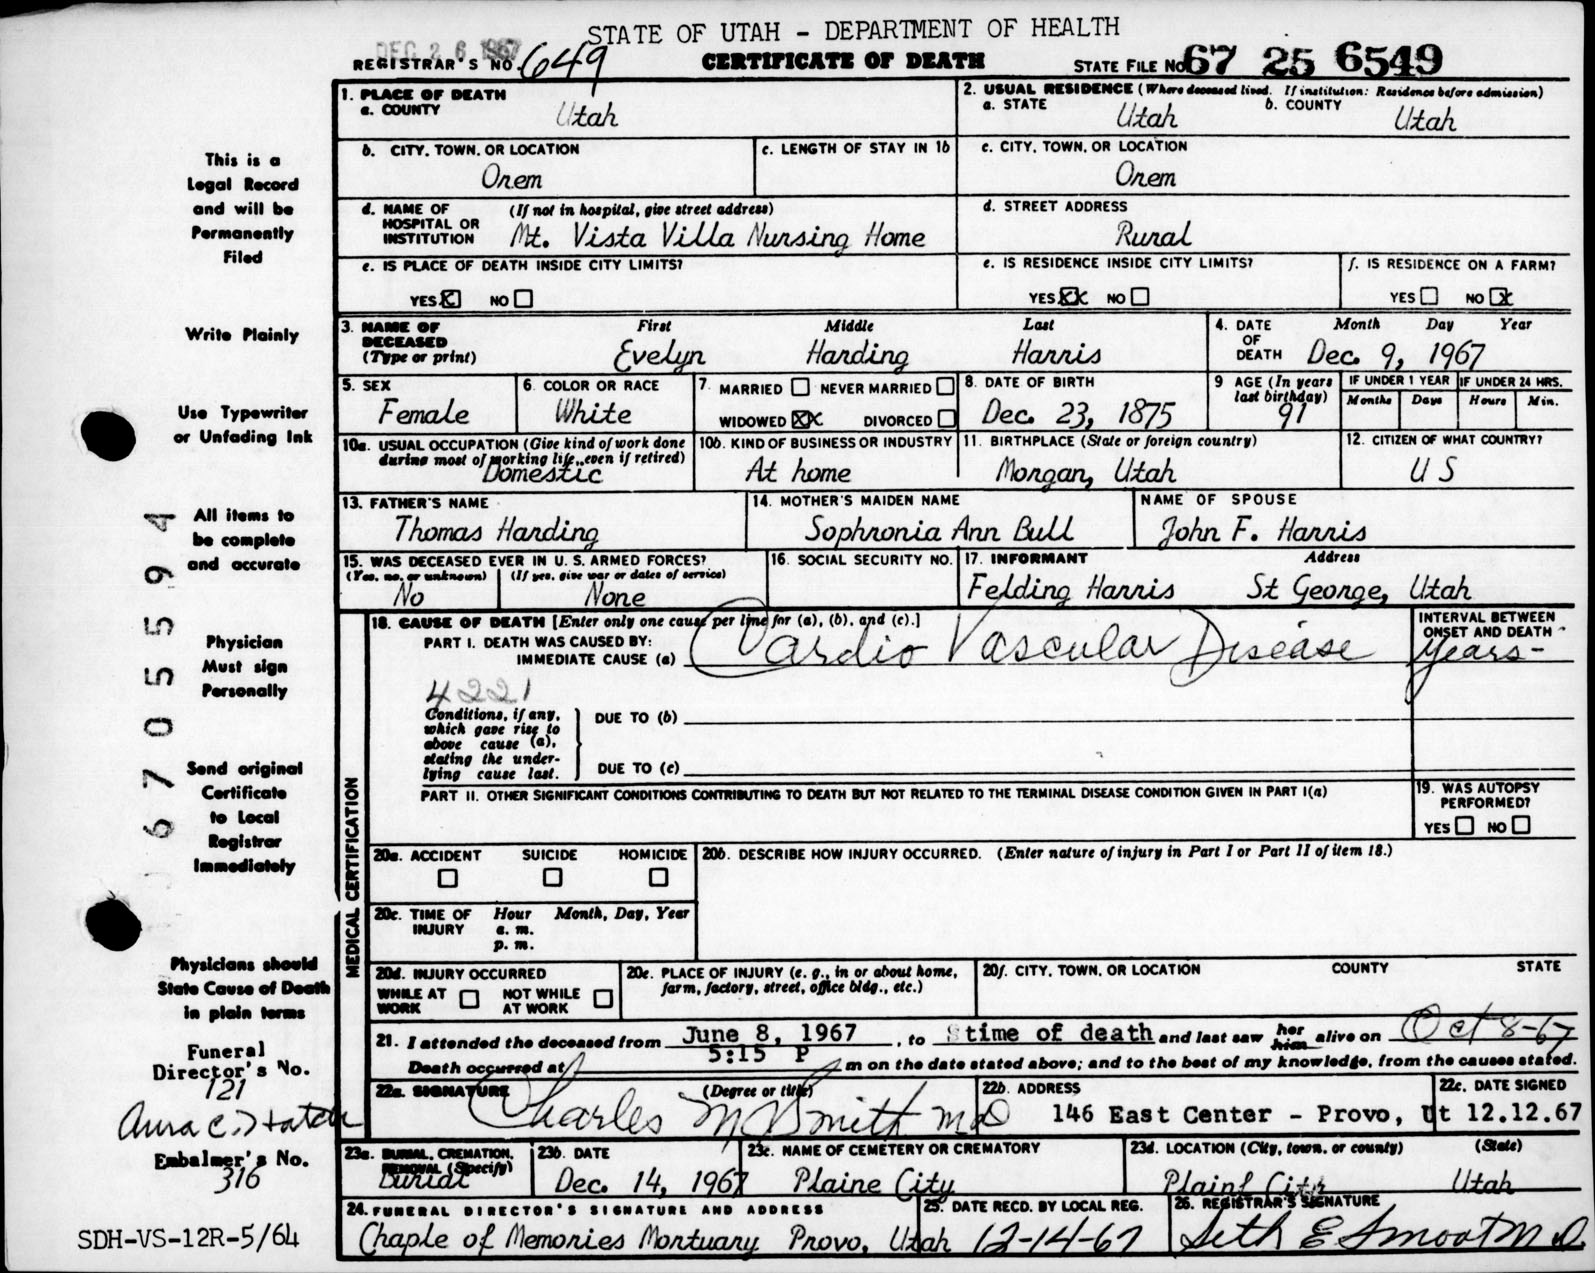 STATE OF UTAH - DEPARTMENT OF HEALTH
DEC 26 1967
REGISTRAR'S NO. 649
CERTIFICATE OF DEATH
STATE FILE NO. 67 25 6549
1. PLACE OF DEATH
a. COUNTY Utah
2. USUAL RESIDENCE (Where deceased lived. If institution: Residence before admission)
a. STATE Utah b. COUNTY Utah
b. CITY, TOWN, OR LOCATION Orem
c. LENGTH OF STAY IN 1b
c. CITY, TOWN, OR LOCATION Orem
d. NAME OF HOSPITAL OR INSTITUTION (If not in hospital, give street address)
Mt. Vista Villa Nursing Home
d. STREET ADDRESS
Rural
e. IS PLACE OF DEATH INSIDE CITY LIMITS?
YES X NO
e. IS RESIDENCE INSIDE CITY LIMITS?
YES XX NO
f. IS RESIDENCE ON A FARM?
YES NO X
3. NAME OF DECEASED (Type or print)
First Middle Last
Evelyn Harding Harris
4. DATE OF DEATH Month Day Year
Dec. 9, 1967
5. SEX
Female
6. COLOR OR RACE
White
7. MARRIED NEVER MARRIED
WIDOWED XX DIVORCED
8. DATE OF BIRTH
Dec. 23, 1875
9 AGE (In years last birthday)
91
IF UNDER 1 YEAR
Months Days
IF UNDER 24 HRS.
Hours Min.
10a. USUAL OCCUPATION (Give kind of work done during most of working life, even if retired)
Domestic
10b. KIND OF BUSINESS OR INDUSTRY
At home
11. BIRTHPLACE (State or foreign country)
Morgan, Utah
12. CITIZEN OF WHAT COUNTRY?
U S
13. FATHER'S NAME
Thomas Harding
14. MOTHER'S MAIDEN NAME
Sophronia Ann Bull
NAME OF SPOUSE
John F. Harris
15. WAS DECEASED EVER IN U. S. ARMED FORCES?
(Yes, no, or unknown) (If yes, give war or dates of service)
No None
16. SOCIAL SECURITY NO.
17. INFORMANT Address
Felding Harris St George, Utah
MEDICAL CERTIFICATION
18. CAUSE OF DEATH [Enter only one cause per line for (a), (b), and (c).]
PART I. DEATH WAS CAUSED BY:
IMMEDIATE CAUSE (a) Cardio Vascular Disease
INTERVAL BETWEEN ONSET AND DEATH
Years-
4221
Conditions, if any, which gave rise to above cause (a), stating the underlying cause last.
DUE TO (b)
DUE TO (c)
PART II. OTHER SIGNIFICANT CONDITIONS CONTRIBUTING TO DEATH BUT NOT RELATED TO THE TERMINAL DISEASE CONDITION GIVEN IN PART I(a)
19. WAS AUTOPSY PERFORMED?
YES NO
20a. ACCIDENT SUICIDE HOMICIDE
20b. DESCRIBE HOW INJURY OCCURRED. (Enter nature of injury in Part I or Part II of item 18.)
20c. TIME OF INJURY Hour Month, Day, Year
a. m.
p. m.
20d. INJURY OCCURRED
WHILE AT WORK NOT WHILE AT WORK
20e. PLACE OF INJURY (e. g., in or about home, farm, factory, street, office bldg., etc.)
20f. CITY, TOWN, OR LOCATION COUNTY STATE
21. I attended the deceased from June 8, 1967, to time of death and last saw her him alive on Oct 8-67
Death occurred at 5:15 P m on the date stated above; and to the best of my knowledge, from the causes stated.
22a. SIGNATURE (Degree or title)
Charles M Smith MD
22b. ADDRESS
146 East Center - Provo, Ut
22c. DATE SIGNED
12.12.67
23a. BURIAL, CREMATION, REMOVAL (Specify)
Burial
23b. DATE
Dec. 14, 1967
23c. NAME OF CEMETERY OR CREMATORY
Plaine City
23d. LOCATION (City, town, or county) (State)
Plain City Utah
24. FUNERAL DIRECTOR'S SIGNATURE AND ADDRESS
Chaple of Memories Mortuary Provo, Utah
25. DATE RECD. BY LOCAL REG.
12-14-67
26. REGISTRAR'S SIGNATURE
Seth E Smoot M.D.
This is a
Legal Record
and will be
Permanently
Filed
Write Plainly
Use Typewriter
or Unfading Ink
All items to
be complete
and accurate
Physician
Must sign
Personally
Send original
Certificate
to Local
Registrar
Immediately
Physicians should
State Cause of Death
in plain terms
Funeral
Director's No.
121
Embalmer's No.
316
SDH-VS-12R-5/64
67055594